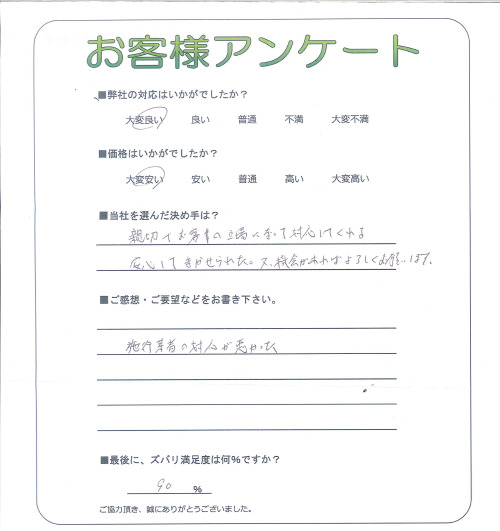 お客様アンケート
■弊社の対応はいかがでしたか？
大変良い 良い 普通 不満 大変不満
■価格はいかがでしたか？
大変安い 安い 普通 高い 大変高い
■当社を選んだ決め手は？
親切でお客様の立場に立って対応してくれる
安心してまかせられた。又、機会があればよろしくお願いします。
■ご感想・ご要望などをお書き下さい。
施行業者の対応が悪かった
■最後に、ズバリ満足度は何％ですか？
90 ％
ご協力頂き、誠にありがとうございました。